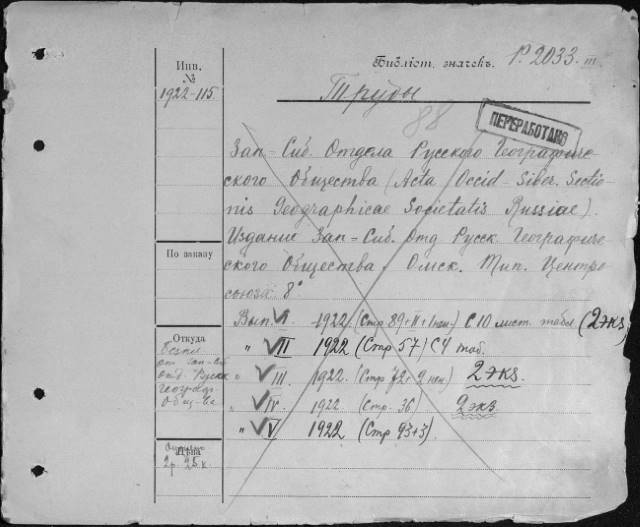 Инв.
№
1922-115.
Библіот. значекъ. Р. 2033. III.
Труды
88
ПЕРЕРАБОТАНО
Зап-Сиб. Отдела Русского Географиче-
ского Общества (Acta Occid-Siber. Sectio-
nis Geographicae Societatis Russiae).
Издание Зап-Сиб. Отд Русск Географиче-
ского Общества. Омск. Тип. Центро
союза 8°
По заказу
Вып. I. 1922. (Стр 89+II+1нен.) С 10 лист. табл. (2 экз)
" II 1922 (Стр 57) С 4 таб.
" III. 1922. (Стр. 72. 2 нен) 2 экз.
" IV. 1922. (Стр. 36) 2 экз
" V. 1922 (Стр 93+3).
Откуда
Безпл
от Зап-Сиб
отд. Русск
географ.
Общ-ва
Цѣна
2р. 25 к.